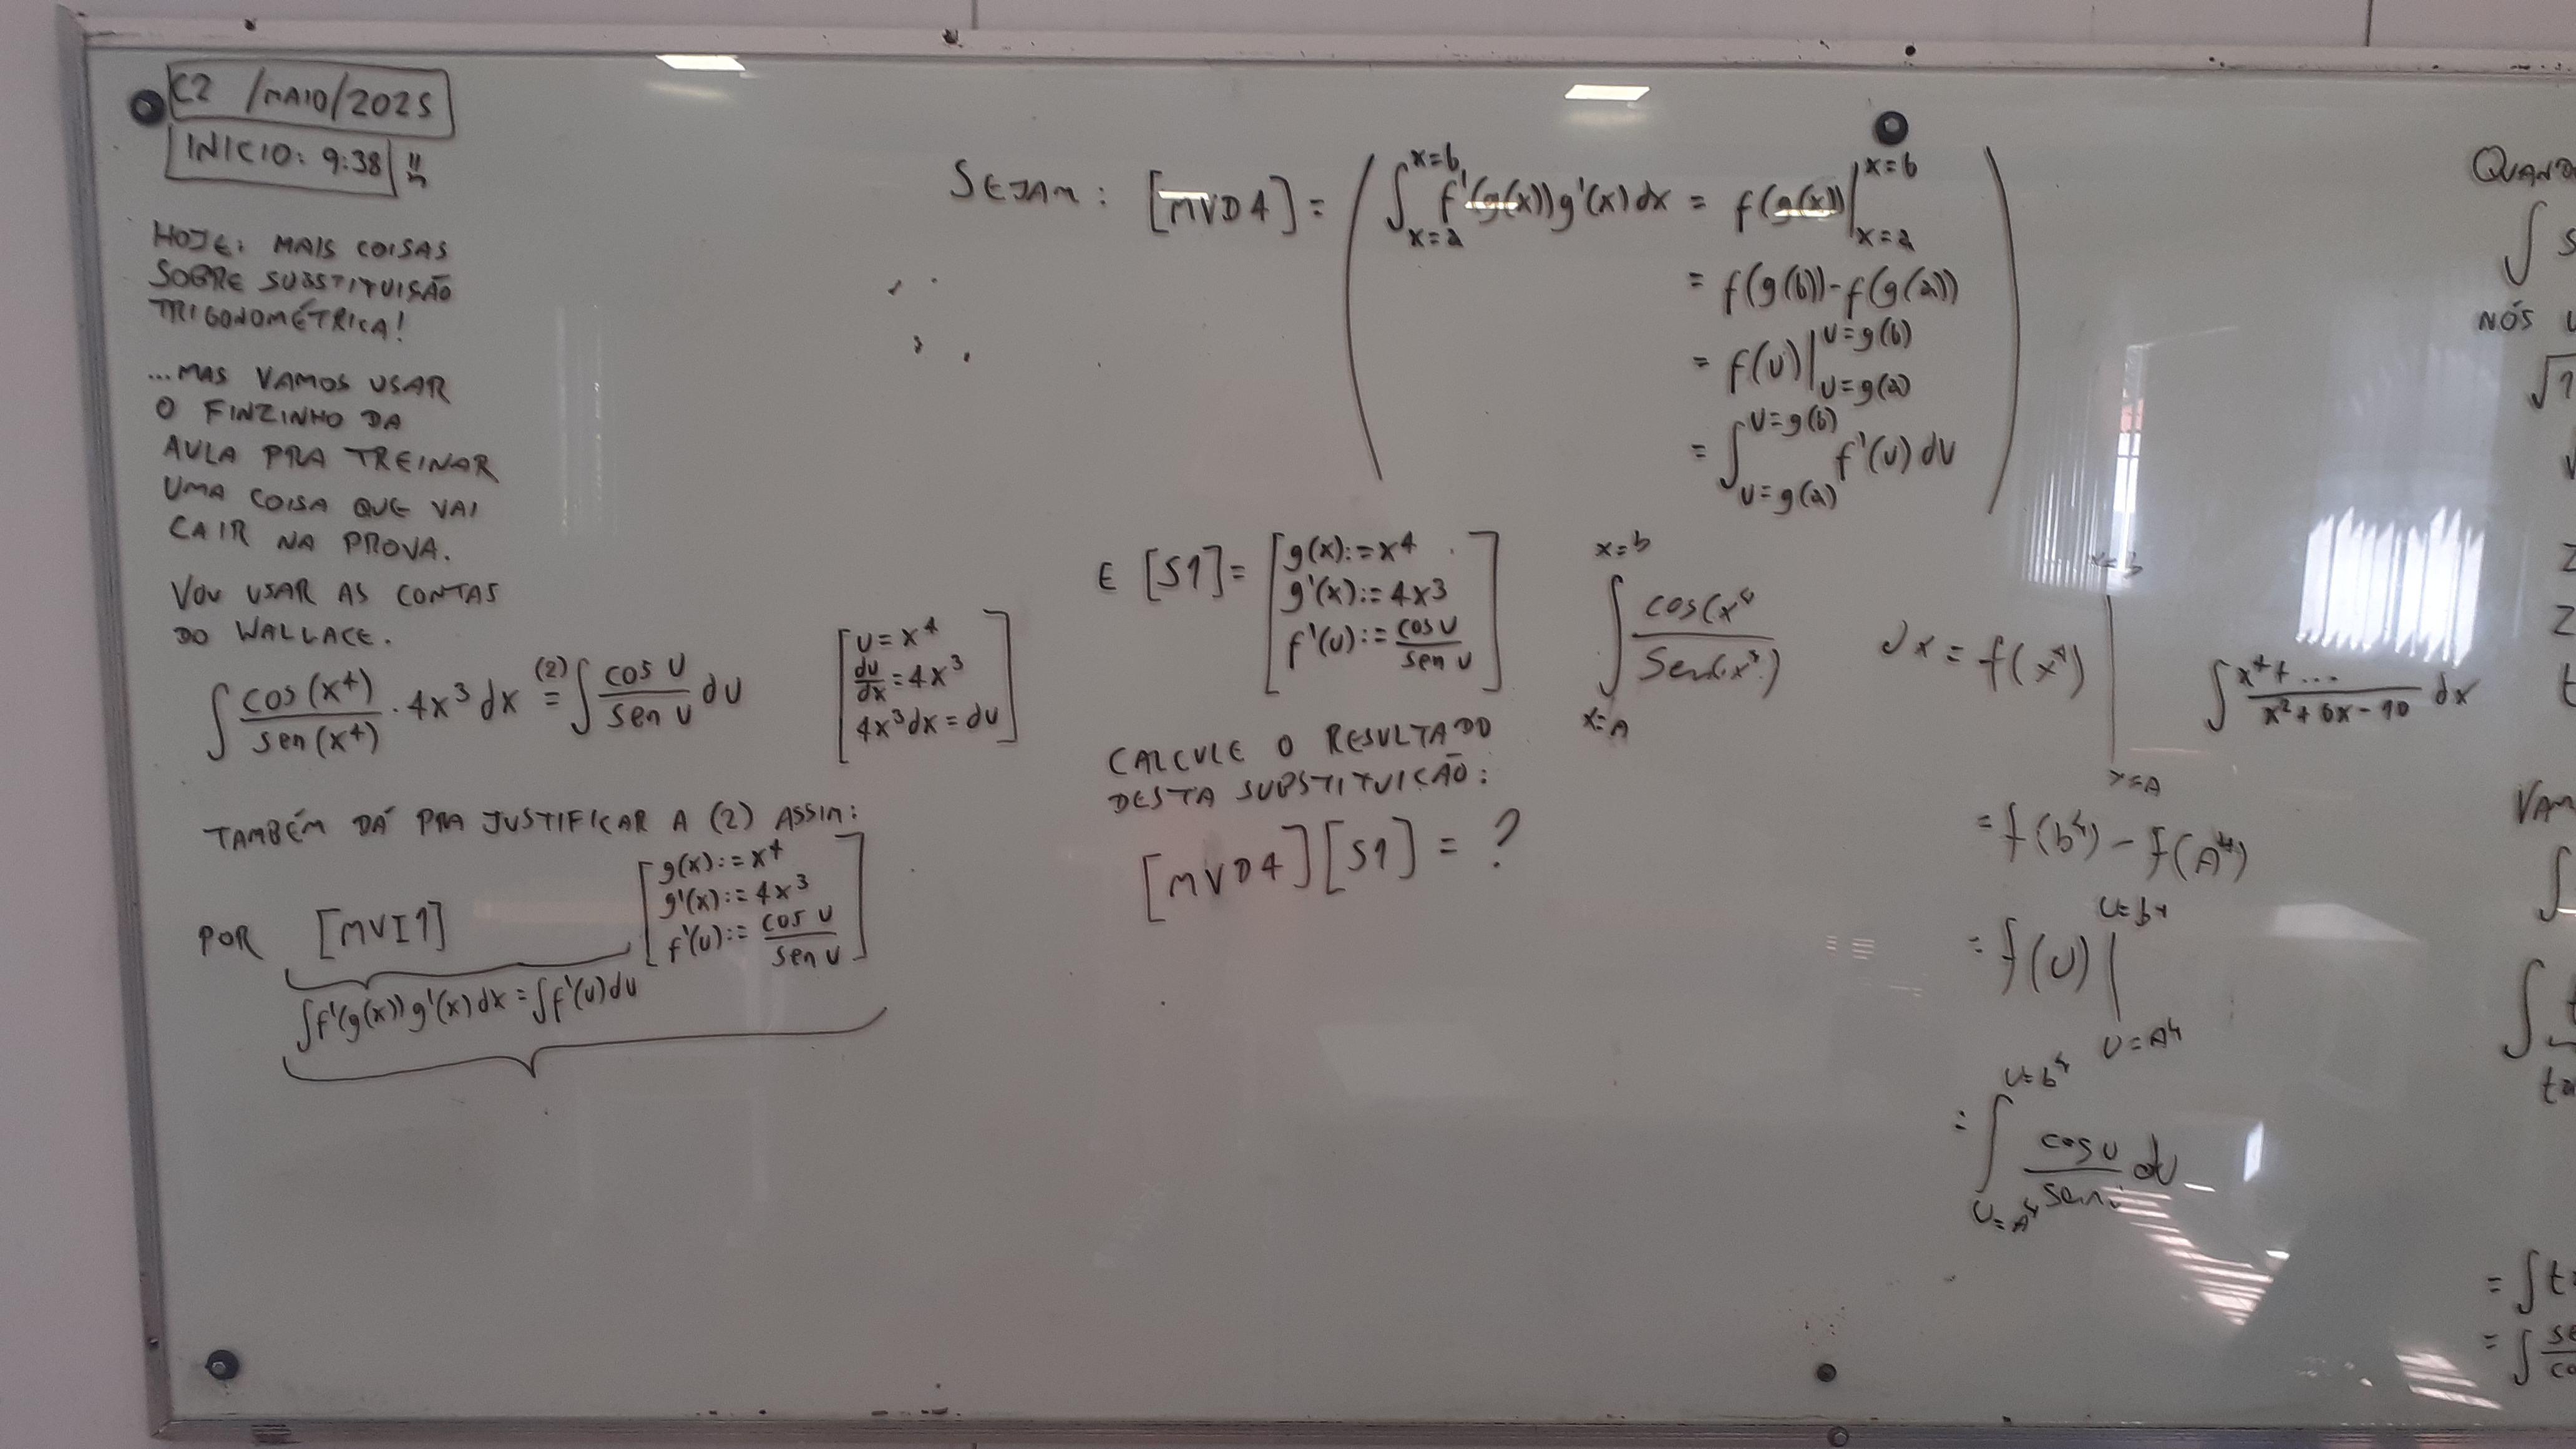 C2 /MAIO/2025
INICIO: 9:38
HOJE: MAIS COISAS
SOBRE SUBSTITUIÇÃO
TRIGONOMÉTRICA!
...MAS VAMOS USAR
O FINZINHO DA
AULA PRA TREINAR
UMA COISA QUE VAI
CAIR NA PROVA.
VOU USAR AS CONTAS
DO WALLACE.
∫ cos(x⁴)/sen(x⁴) · 4x³ dx (2)= ∫ cos u/sen u du
[u = x⁴
du/dx = 4x³
4x³dx = du]
TAMBÉM DÁ PRA JUSTIFICAR A (2) ASSIM:
POR [MVI1] [g(x):=x⁴
g'(x):=4x³
f'(u):= cos u/sen u]
∫f'(g(x))g'(x)dx = ∫f'(u)du
SEJAM: [MVD4] = (∫_{x=a}^{x=b} f'(g(x))g'(x)dx = f(g(x))|_{x=a}^{x=b}
= f(g(b))-f(g(a))
= f(u)|_{u=g(a)}^{u=g(b)}
= ∫_{u=g(a)}^{u=g(b)} f'(u)du)
E [S1] = [g(x):=x⁴
g'(x):=4x³
f'(u):= cos u/sen u]
CALCULE O RESULTADO
DESTA SUBSTITUIÇÃO:
[MVD4][S1] = ?
∫_{x=A}^{x=b} cos(x⁴/Sen(x⁴) dx = f(x⁴)|_{x=A}^{x=b}
= f(b⁴) - f(A⁴)
= f(u)|_{u=A⁴}^{u=b⁴}
= ∫_{u=A⁴}^{u=b⁴} cos u/sen u du
∫ x⁴+.../x²+6x-10 dx
NÓS